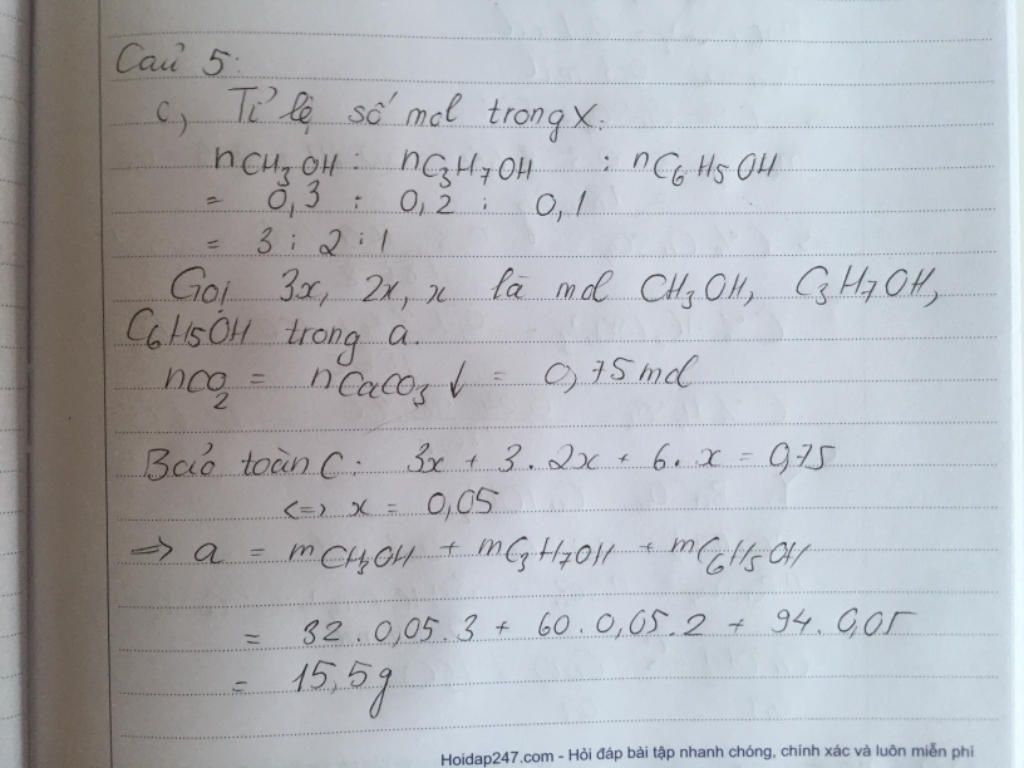 Câu 5:
c, Tỉ lệ số mol trong X:
nCH₃OH : nC₃H₇OH : nC₆H₅OH
= 0,3 : 0,2 : 0,1
= 3 : 2 : 1
Gọi 3x, 2x, x là mol CH₃OH, C₃H₇OH,
C₆H₅OH trong a.
nCO₂ = nCaCO₃↓ = 0,75 mol
Bảo toàn C: 3x + 3.2x + 6.x = 0,75
<=> x = 0,05
=> a = mCH₃OH + mC₃H₇OH + mC₆H₅OH
= 32.0,05.3 + 60.0,05.2 + 94.0,05
= 15,5g
Hoidap247.com - Hỏi đáp bài tập nhanh chóng, chính xác và luôn miễn phí